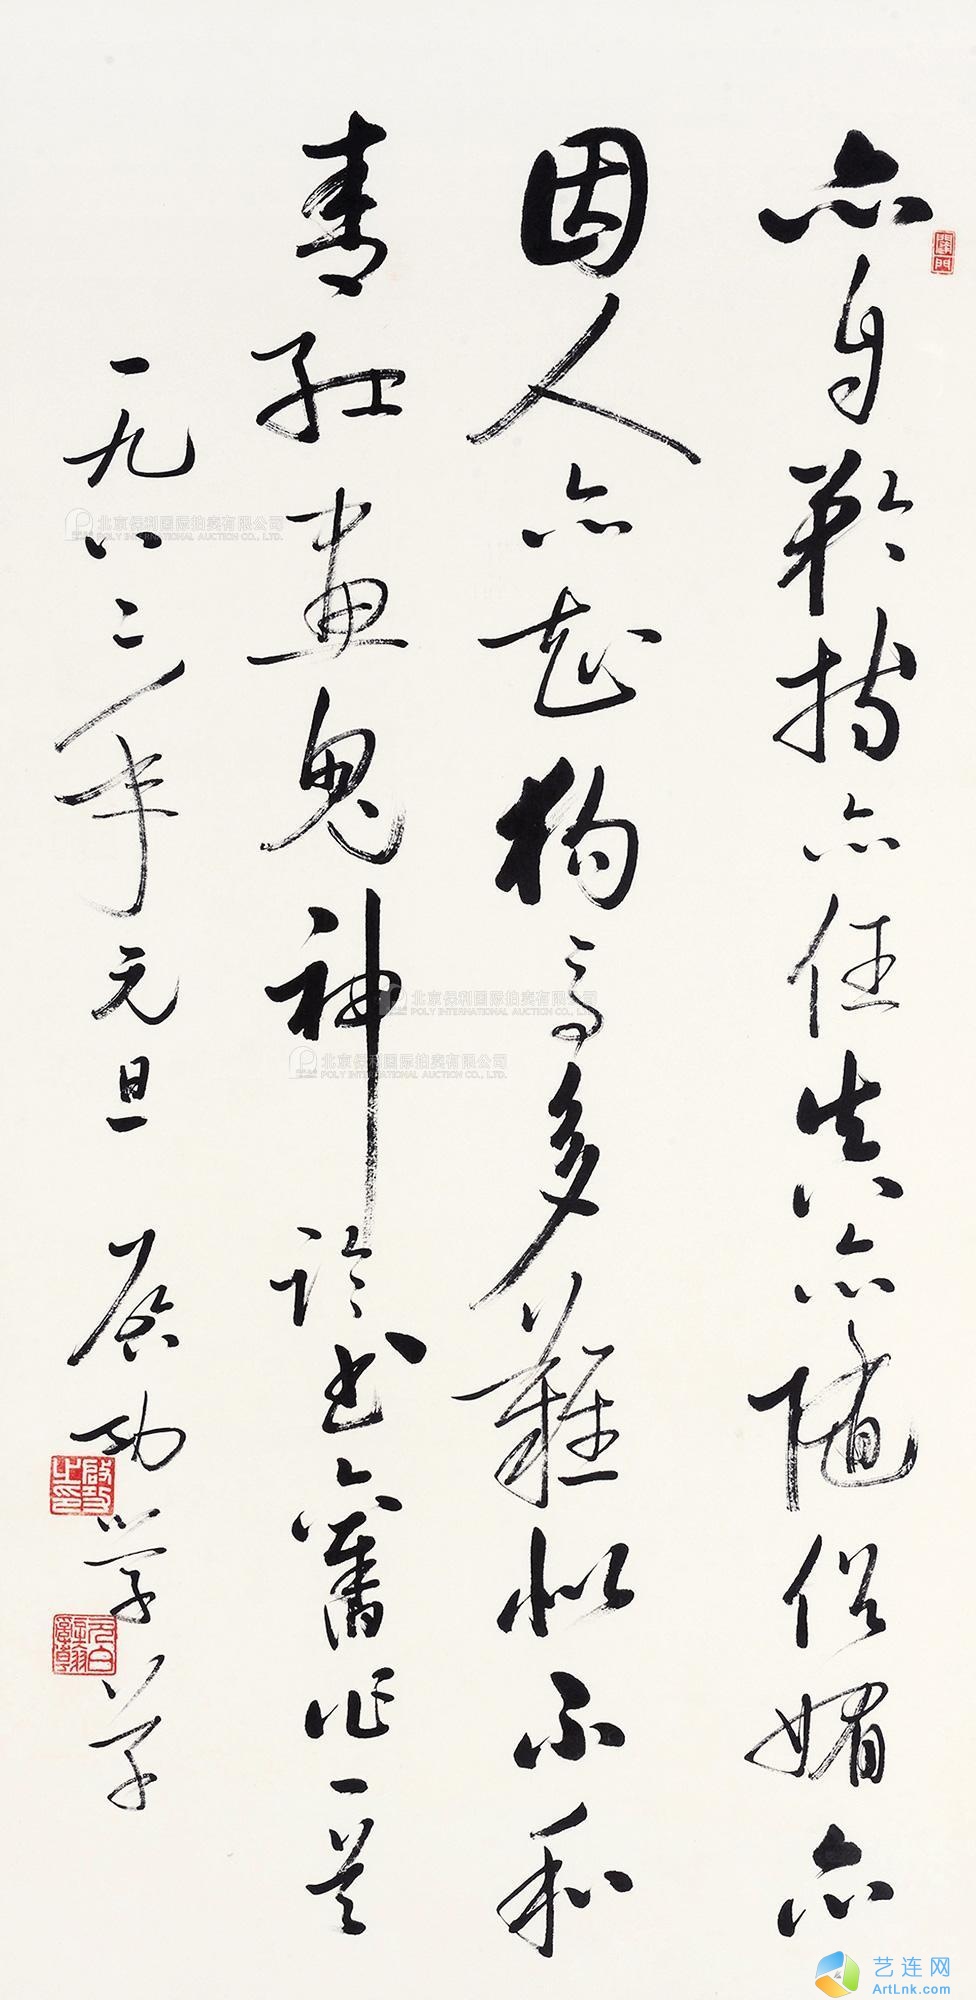 亦自矜持亦任真亦随俗媚亦
因人亦知狗馬多難似不和
青紅畫鬼神論書舊作一首
一九八二年元旦 啟功學草
啟功之印
北京保利国际拍卖有限公司
POLY INTERNATIONAL AUCTION CO., LTD.
北京保利国际拍卖有限公司
POLY INTERNATIONAL AUCTION CO., LTD.
北京保利国际拍卖有限公司
POLY INTERNATIONAL AUCTION CO., LTD.
艺连网
ArtLnk.com